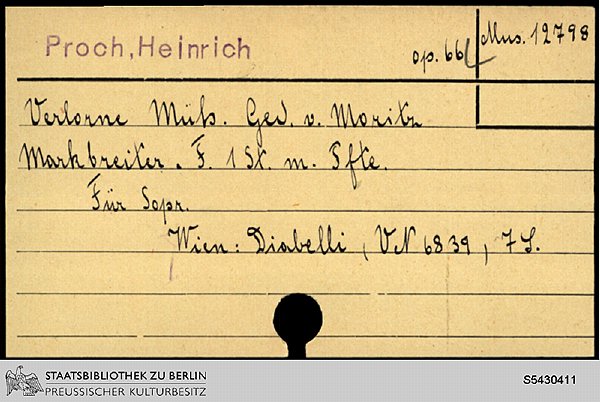 Proch, Heinrich
op. 66
Mus. 12798
Verlorne Müh. Ged. v. Moritz
Markbreiter. F. 1 St. m. Pfte.
Für Sopr.
Wien: Diabelli, VN 6839, 7 S.
STAATSBIBLIOTHEK ZU BERLIN
PREUSSISCHER KULTURBESITZ
S5430411